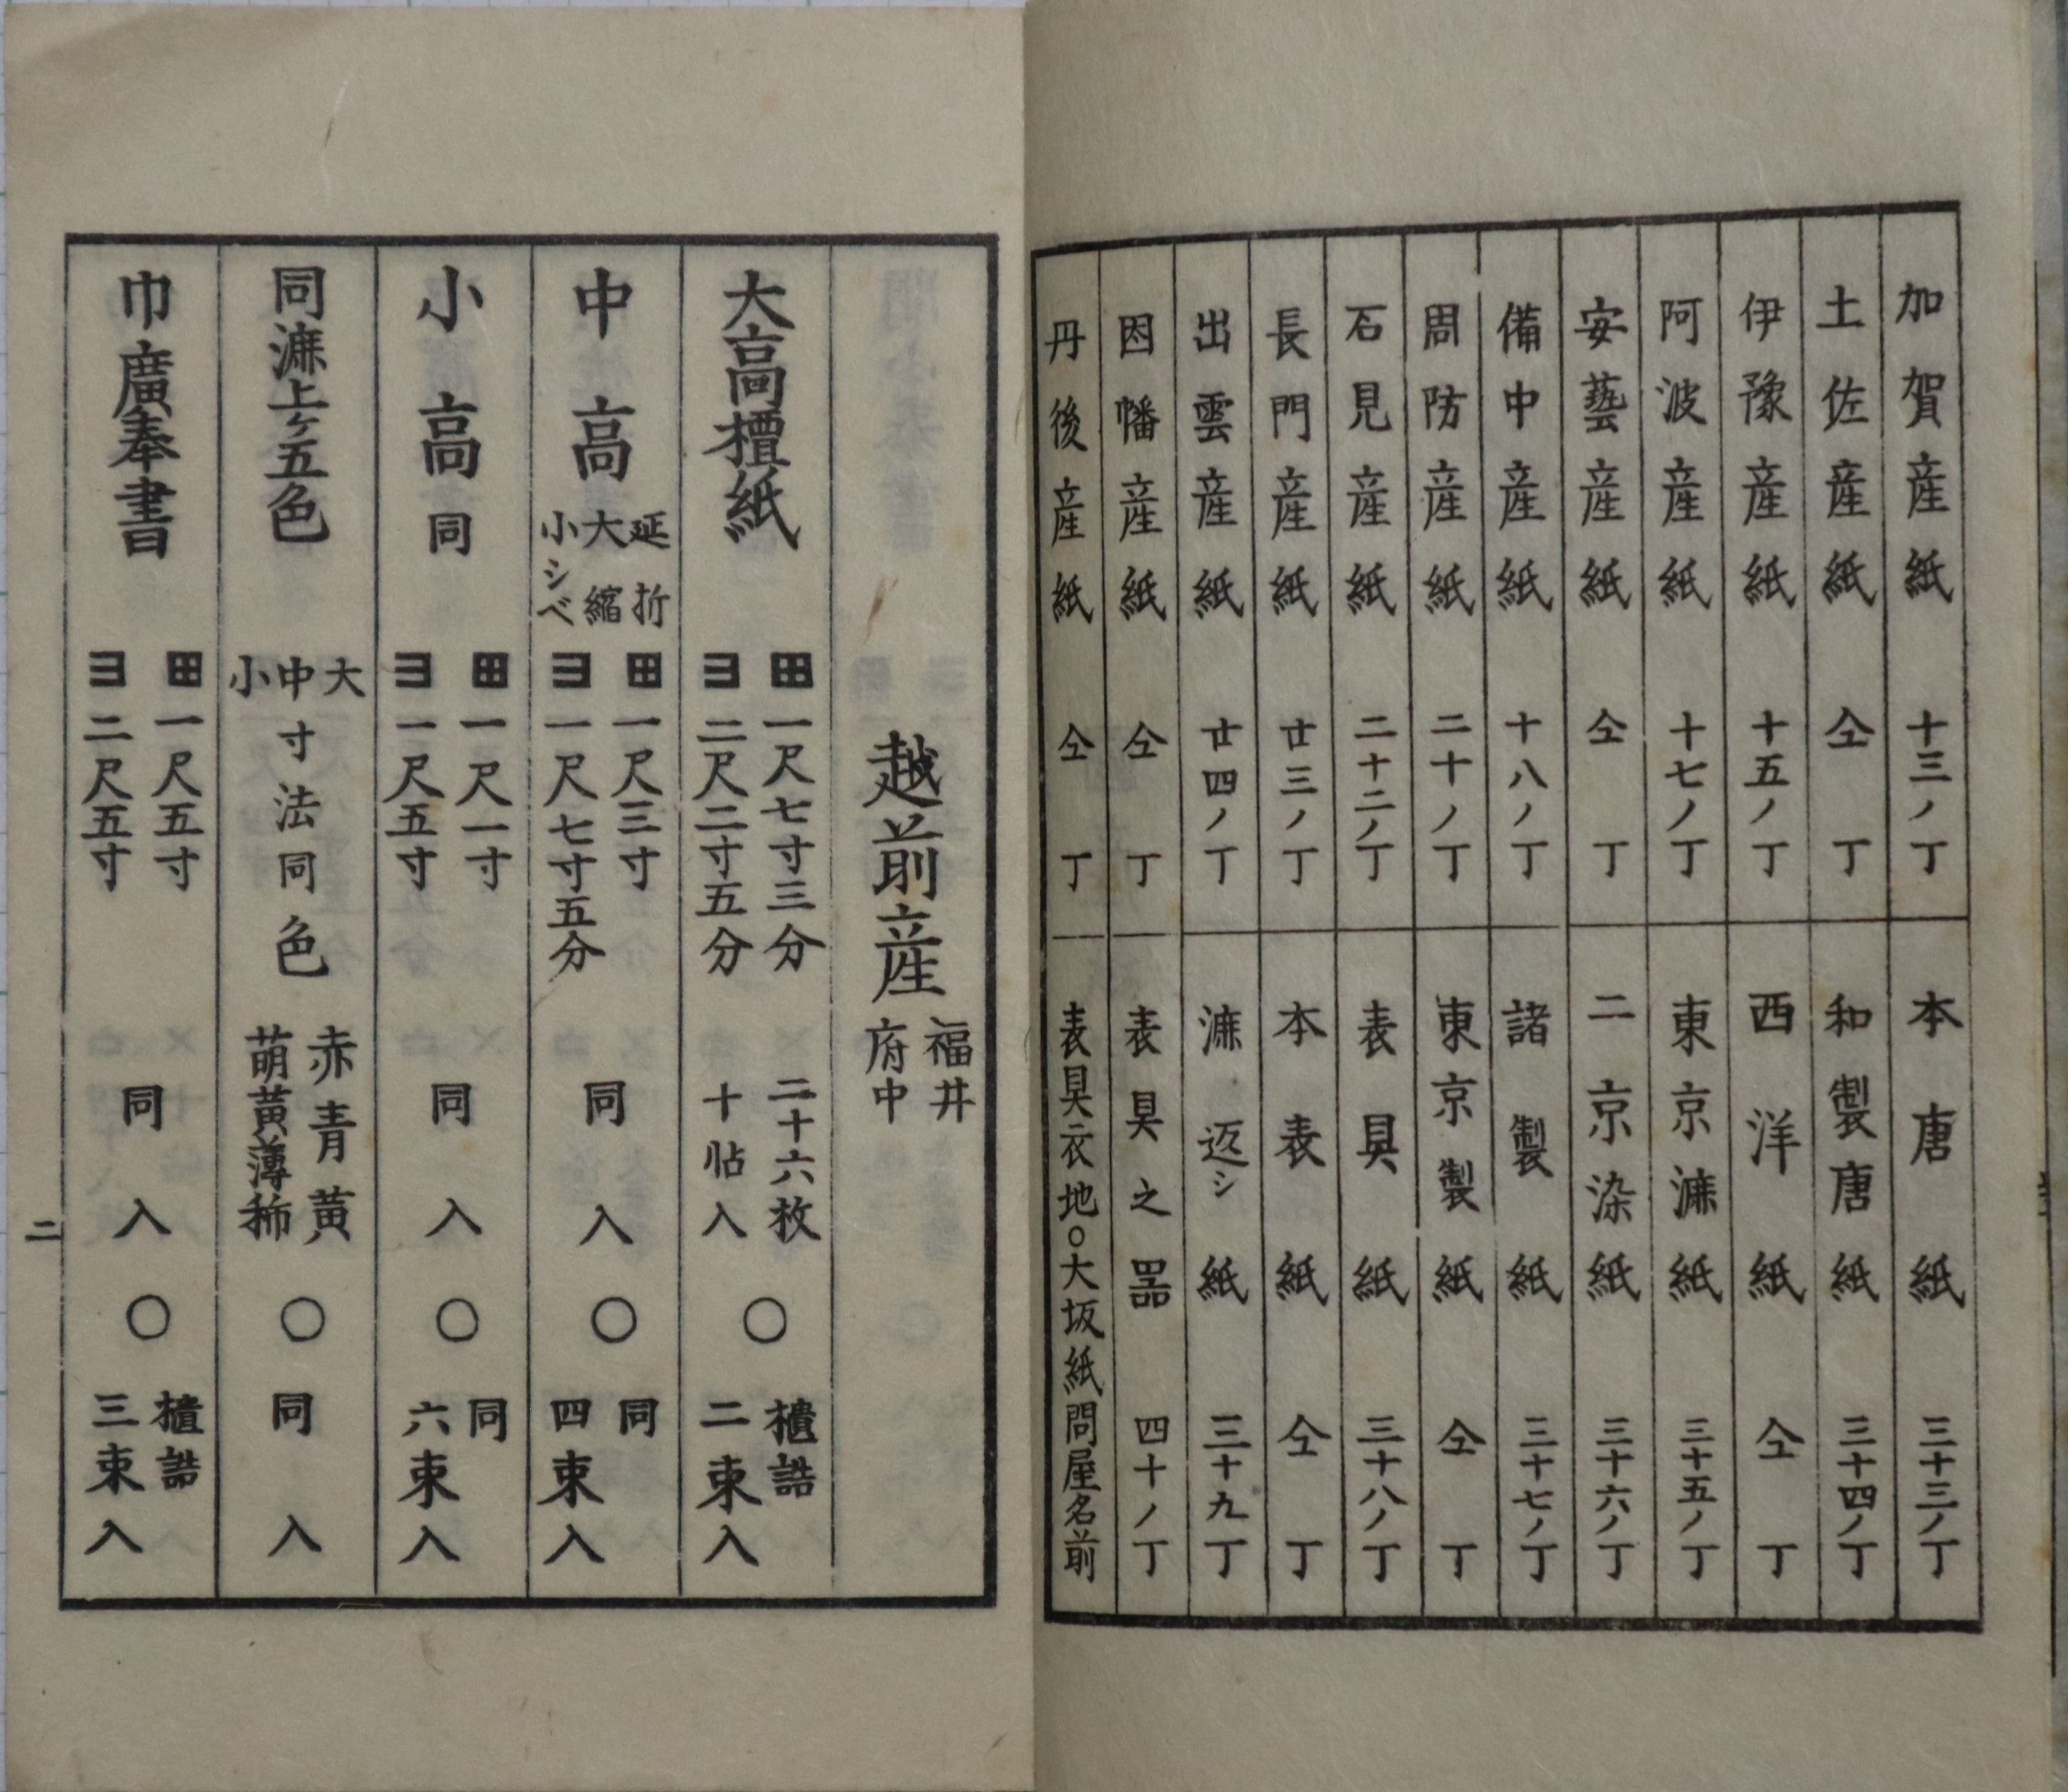 加賀産紙 十三ノ丁
土佐産紙 仝丁
伊豫産紙 十五ノ丁
阿波産紙 十七ノ丁
安藝産紙 仝丁
備中産紙 十八ノ丁
周防産紙 二十ノ丁
石見産紙 二十二ノ丁
長門産紙 廿三ノ丁
出雲産紙 廿四ノ丁
因幡産紙 仝丁
丹後産紙 仝丁
本唐紙 三十三ノ丁
和製唐紙 三十四ノ丁
西洋紙 仝丁
東京漉紙 三十五ノ丁
二京染紙 三十六ノ丁
諸製紙 三十七ノ丁
東京製紙 仝丁
表具紙 三十八ノ丁
本表紙 仝丁
漉返シ紙 三十九丁
表具之器 四十ノ丁
表具衣地○大坂紙問屋名前
越前産 福井 府中
大高檀紙 田一尺七寸三分 ヨ二尺二寸五分 二十六枚 十帖入 ○ 櫃詰 二束入
中高 延折 大縮 小シベ 田一尺三寸 ヨ一尺七寸五分 同入 ○ 同 四束入
小高 同 田一尺一寸 ヨ一尺五寸 同入 ○ 同 六束入
同漉上ケ五色 大中小 寸法同色 赤青黄 萌黄薄柹 ○ 同入
巾廣奉書 田一尺五寸 ヨ二尺五寸 同入 ○ 櫃詰 三束入
二